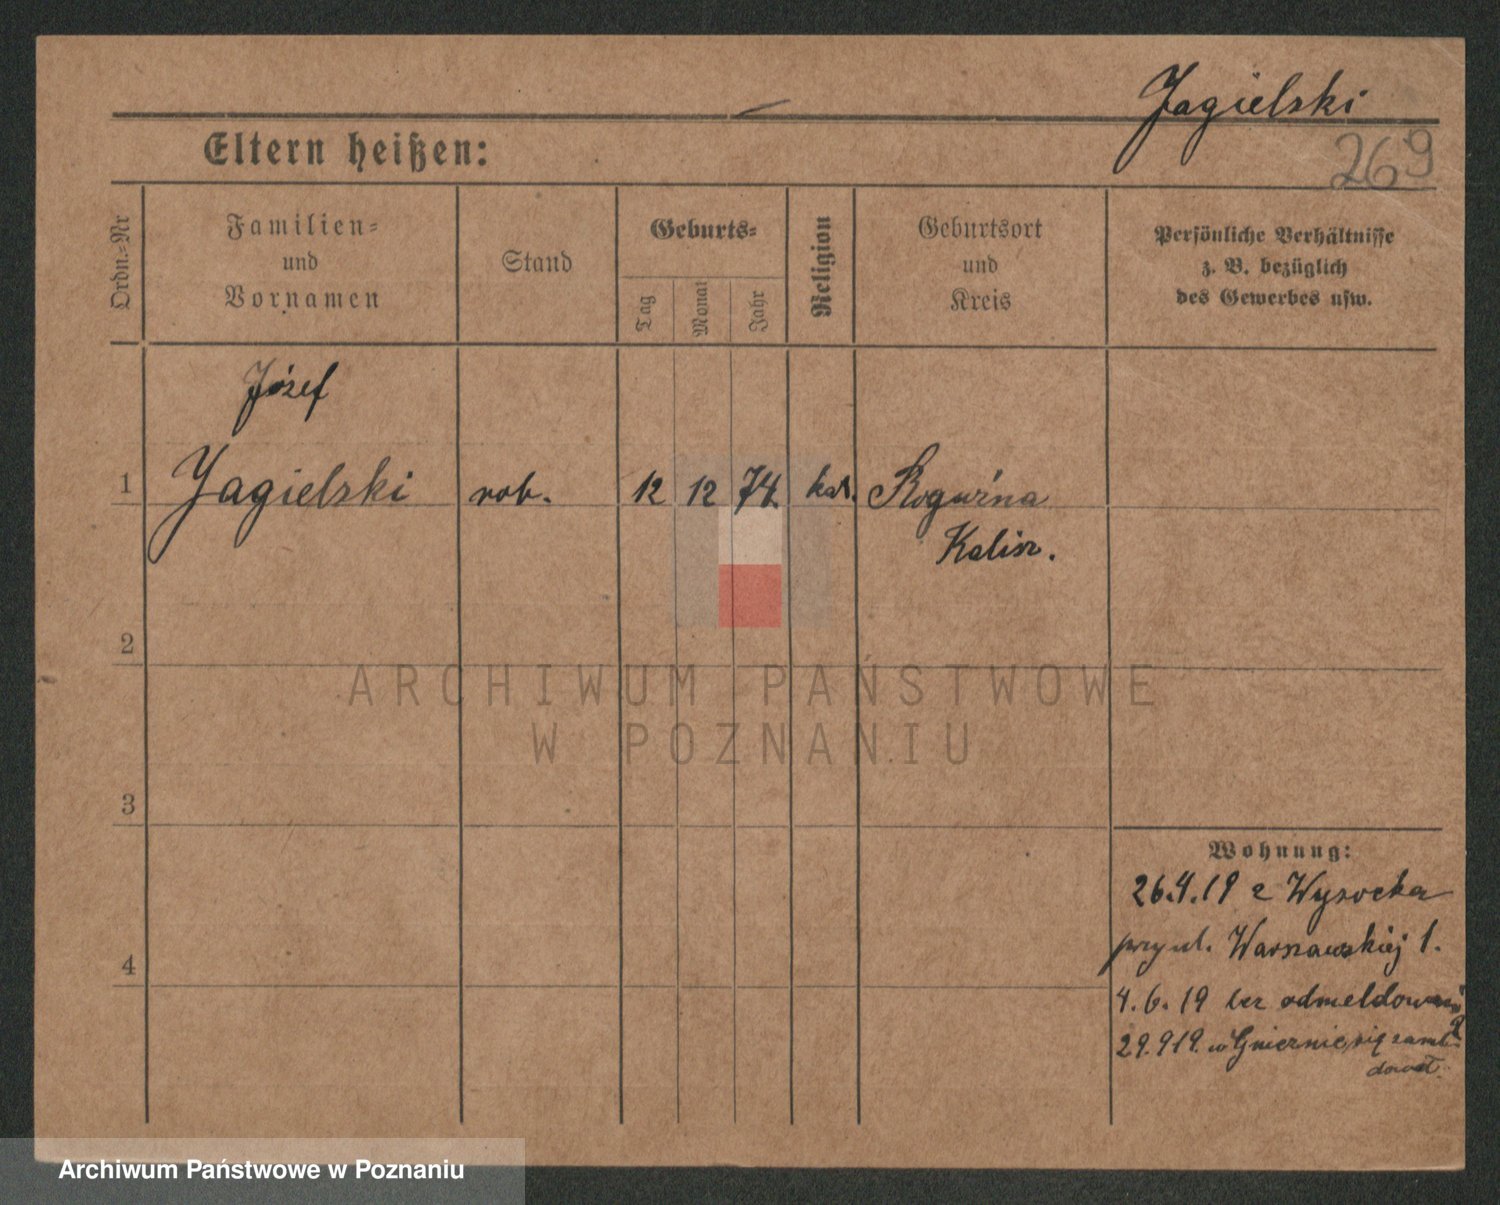 Jagielski
269
Eltern heißen:
Ordn.-Nr
Familien-
und
Vornamen
Stand
Geburts-
Tag
Monat
Jahr
Religion
Geburtsort
und
Kreis
Persönliche Verhältnisse
z. B. bezüglich
des Gewerbes usw.
Józef
1 Jagielski rob. 12 12 74 kat.
Kalisz.
2
ARCHIWUM PAŃSTWOWE
W POZNANIU
3
Wohnung:
26.4.19 z Wysocka
przy ul. Warszawskiej 1.
4
4.6.19 bez odmeldowania
29.9 19. w Gnieznie się zamel-
dował.
Archiwum Państwowe w Poznaniu